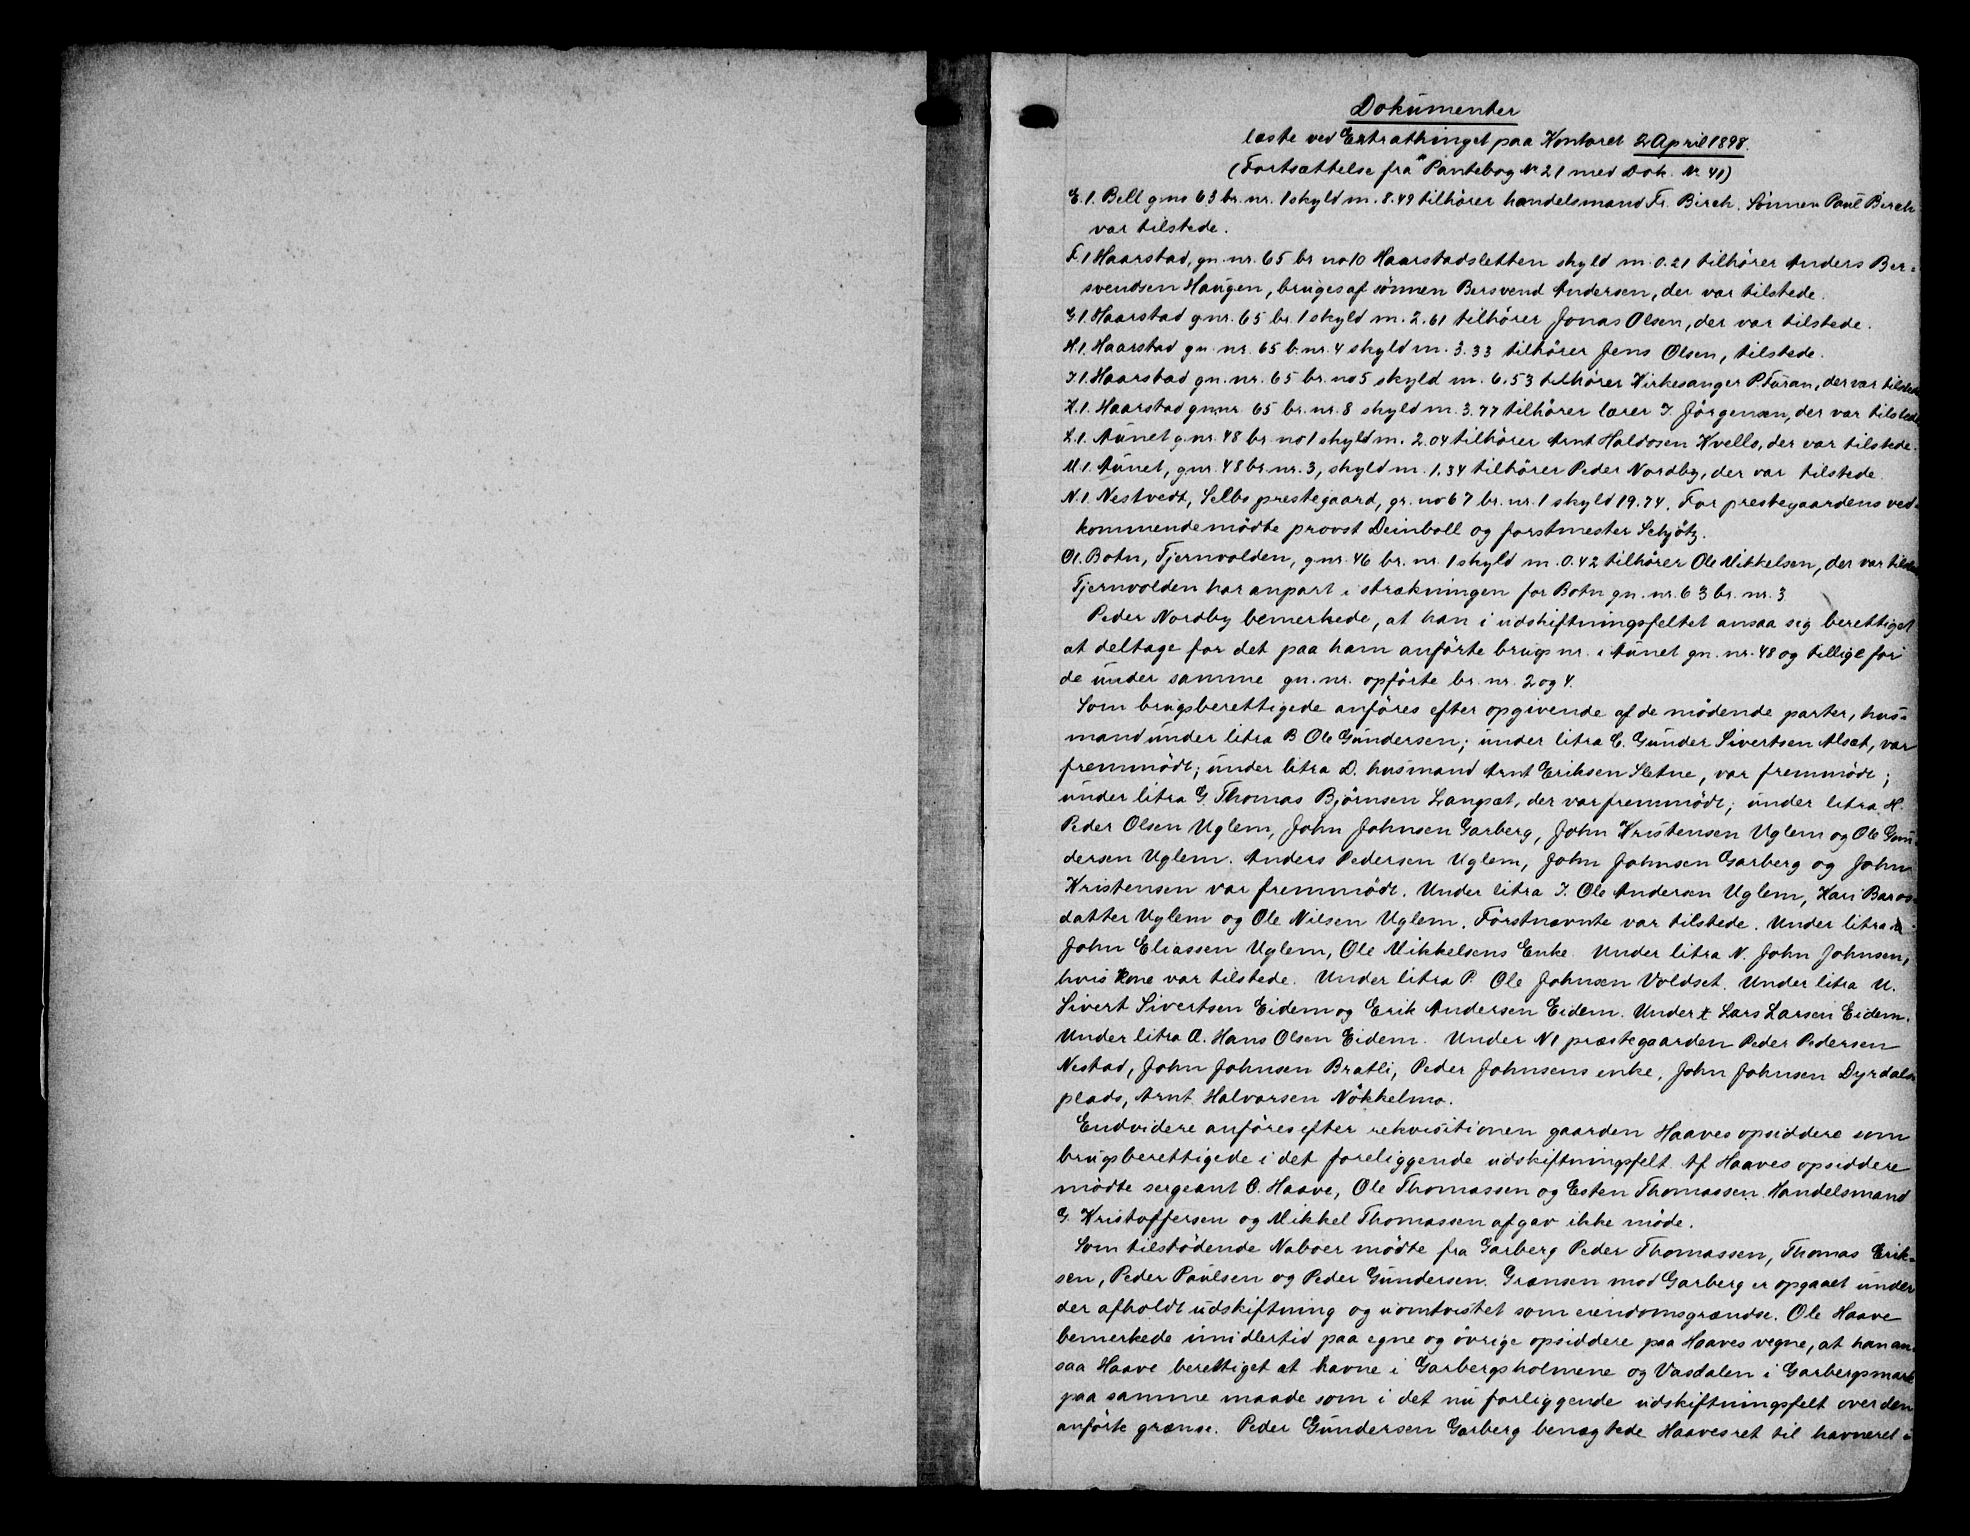 Dokumenter
læste ved Extrathinget paa Kontoret 2 April 1898.
(Fortsættelse fra Pantebog Nr 21 med Dok. Nr 41)
E.1. Bell gnr 63 br. nr. 1 skyld m. 8.49 tilhører handelsmand Fr. Birch. Sønnen Paul Birch
var tilstede.
F.1 Haarstad, gn. nr. 65 br no 10 Haarstadsletten skyld m. 0.21 tilhører Anders Ber-
svendsen Haugen, bruges af sønnen Bersvend Andersen, der var tilstede.
G.1. Haarstad gnr. 65 br. 1 skyld m. 2.61 tilhører Jonas Olsen, der var tilstede.
H.1. Haarstad gn. nr. 65 b. nr. 4 skyld m. 3.33 tilhører Jens Olsen, tilstede.
I1. Haarstad gn. nr. 65 br. no 5 skyld m. 6.53 tilhører Kirkesanger P. Furan, der var tilstede
K.1. Haarstad gn. nr. 65 br. nr. 8 skyld m. 3.77 tilhører lærer I. Jørgensen, der var tilstede
L.1. Aunet g. nr. 48 br no 1 skyld m. 2.04 tilhører Arnt Haldosen Kvello, der var tilstede.
M.1. Aunet, gnr. 48 br. nr. 3, skyld m. 1.34 tilhører Peder Nordby, der var tilstede.
N.1. Nestvedt, Selbo prestegaard, gr. no 67 br. nr. 1 skyld 19.74. For prestegaardens ved-
kommende mødte provst Deinboll og forstmester Schjötz.
O1. Botn, Tjernvolden, gnr. 46 br. nr. 1 skyld m. 0.42 tilhører Ole Mikkelsen, der var tilstede
Tjernvolden har anpart i strækningen for Botn gn. nr. 63 br. nr. 3.
Peder Nordby bemerkede, at han i udskiftningsfeltet ansaa sig berettiget
at deltage for det paa ham anførte brugs nr. i Aunet gn. nr. 48 og tillige for
de under samme gn. nr. opførte br. nr. 2 og 4.
Som brugsberettigede anføres efter opgivende af de mødende parter, hus-
mand under litra B Ole Gundersen; under litra C. Gunder Sivertsen Alset, var
fremmødt; under litra D. husmand Arnt Eriksen Sletne, var fremmødt;
under litra G. Thomas Bjørnsen Langset, der var fremmødt; under litra H.
Peder Olsen Uglem, John Johnsen Garberg, John Kristensen Uglem og Ole Gun-
dersen Uglem. Anders Pedersen Uglem, John Johnsen Garberg og John
Kristensen var fremmødt. Under litra I. Ole Andersen Uglem, Kari Baros-
datter Uglem og Ole Nilsen Uglem. Førstnævnte var tilstede. Under litra
John Eliassen Uglem, Ole Mikkelsens Enke. Under litra N. John Johnsen,
hvis Kone var tilstede. Under litra P. Ole Johnsen Voldset. Under litra U.
Sivert Sivertsen Eidem og Erik Andersen Eidem. Under Lars Larsen Eidem.
Under litra Hans Olsen Eidem. Under N1 præstegaarden Peder Pedersen
Nestad, John Johnsen Bratli, Peder Johnsens enke, John Johnsen Dyrdals-
plads, Arnt Halvorsen Nökkelmo.
Endvidere anføres efter rekvisitionen gaarden Haaves opsiddere som
brugsberettigede i det foreliggende udskiftningsfelt. Af Haaves opsiddere
mødte sergeant O. Haave, Ole Thomassen og Esten Thomassen. Handelsmand
G. Kristoffersen og Mikkel Thomassen afgav ikke møde.
Som tilstødende Naboer mødte fra Garberg Peder Thomassen, Thomas Erik-
sen, Peder Paulsen og Peder Gundersen. Grænsen mod Garberg er opgaaet under
der afholdt udskiftning og uomtvistet som eiendomsgrændse. Ole Haave
bemerkede imidlertid paa egne og øvrige opsiddere paa Haaves vegne, at han an-
saa Haave berettiget at havne i Garbergsholmene og Vasdalen i Garbergsmark
paa samme maade som i det nu forliggende udskiftningsfelt over den
anførte grænse. Peder Gundersen Garberg benægtede Haavesret til havneret i